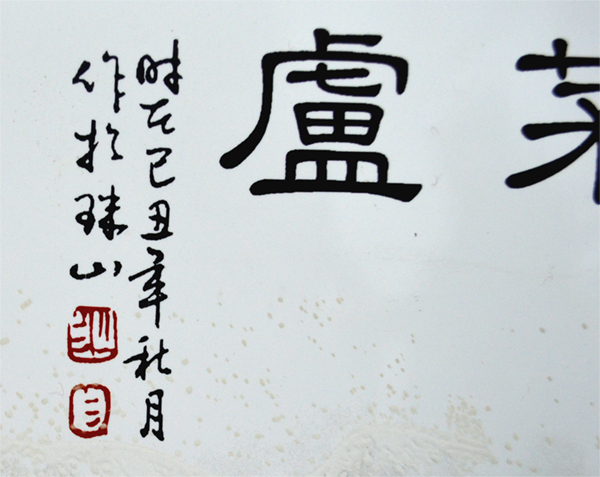 盧
时在己丑年秋月
作於珠山